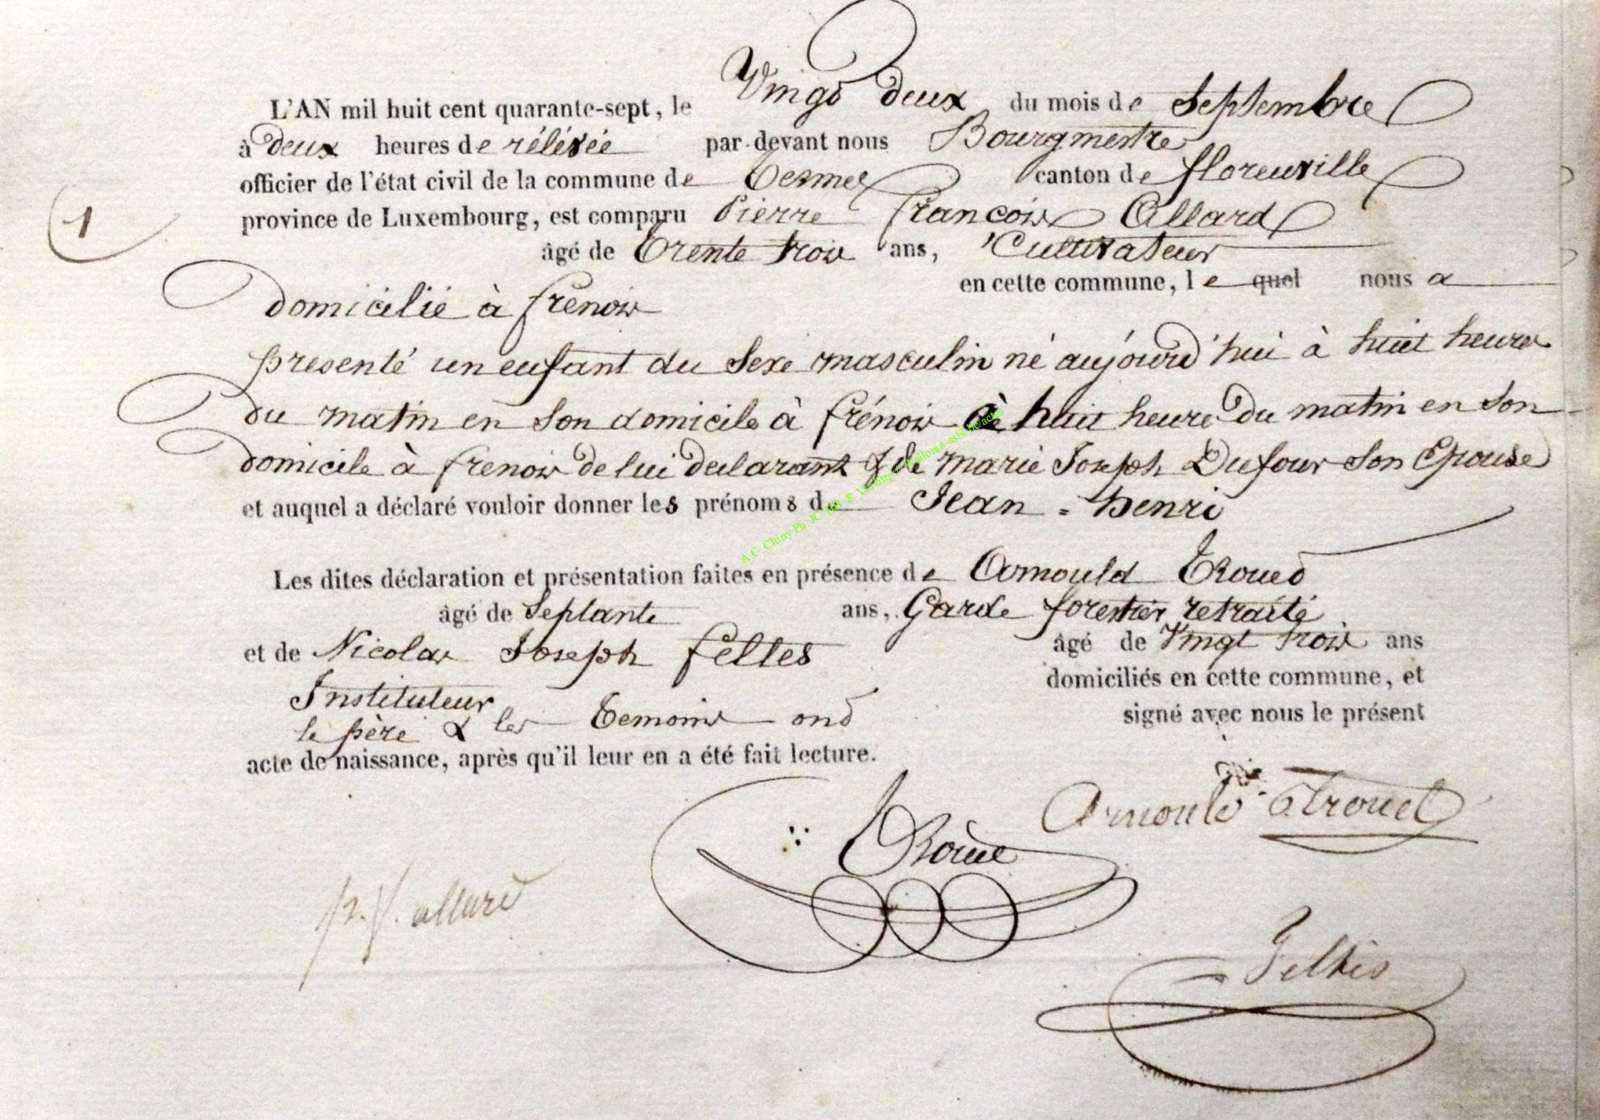 L'AN mil huit cent quarante-sept, le Vingt deux du mois de Septembre
à deux heures de rélévée par-devant nous Bourgmestre
officier de l'état civil de la commune de Termes canton de florenville
province de Luxembourg, est comparu Pierre François Allard
1
âgé de Trente trois ans, Cultivateur
en cette commune, le quel nous a
domicilié à frenois
présenté un enfant du Sexe masculin né aujourd'hui à huit heures
du matin en son domicile à frénois à huit heures du matin en son
domicile à frenois de lui declarant & de marie Joseph Dufour son Epouse
et auquel a déclaré vouloir donner les prénoms de Jean-henri
Les dites déclaration et présentation faites en présence de Arnould
âgé de Septante ans, Garde forestier retraité
et de Nicolas Joseph feltes âgé de Vingt trois ans
Instituteur domiciliés en cette commune, et
le père & les Temoins ont signé avec nous le présent
acte de naissance, après qu'il leur en a été fait lecture.
Arnould
p. f. allard